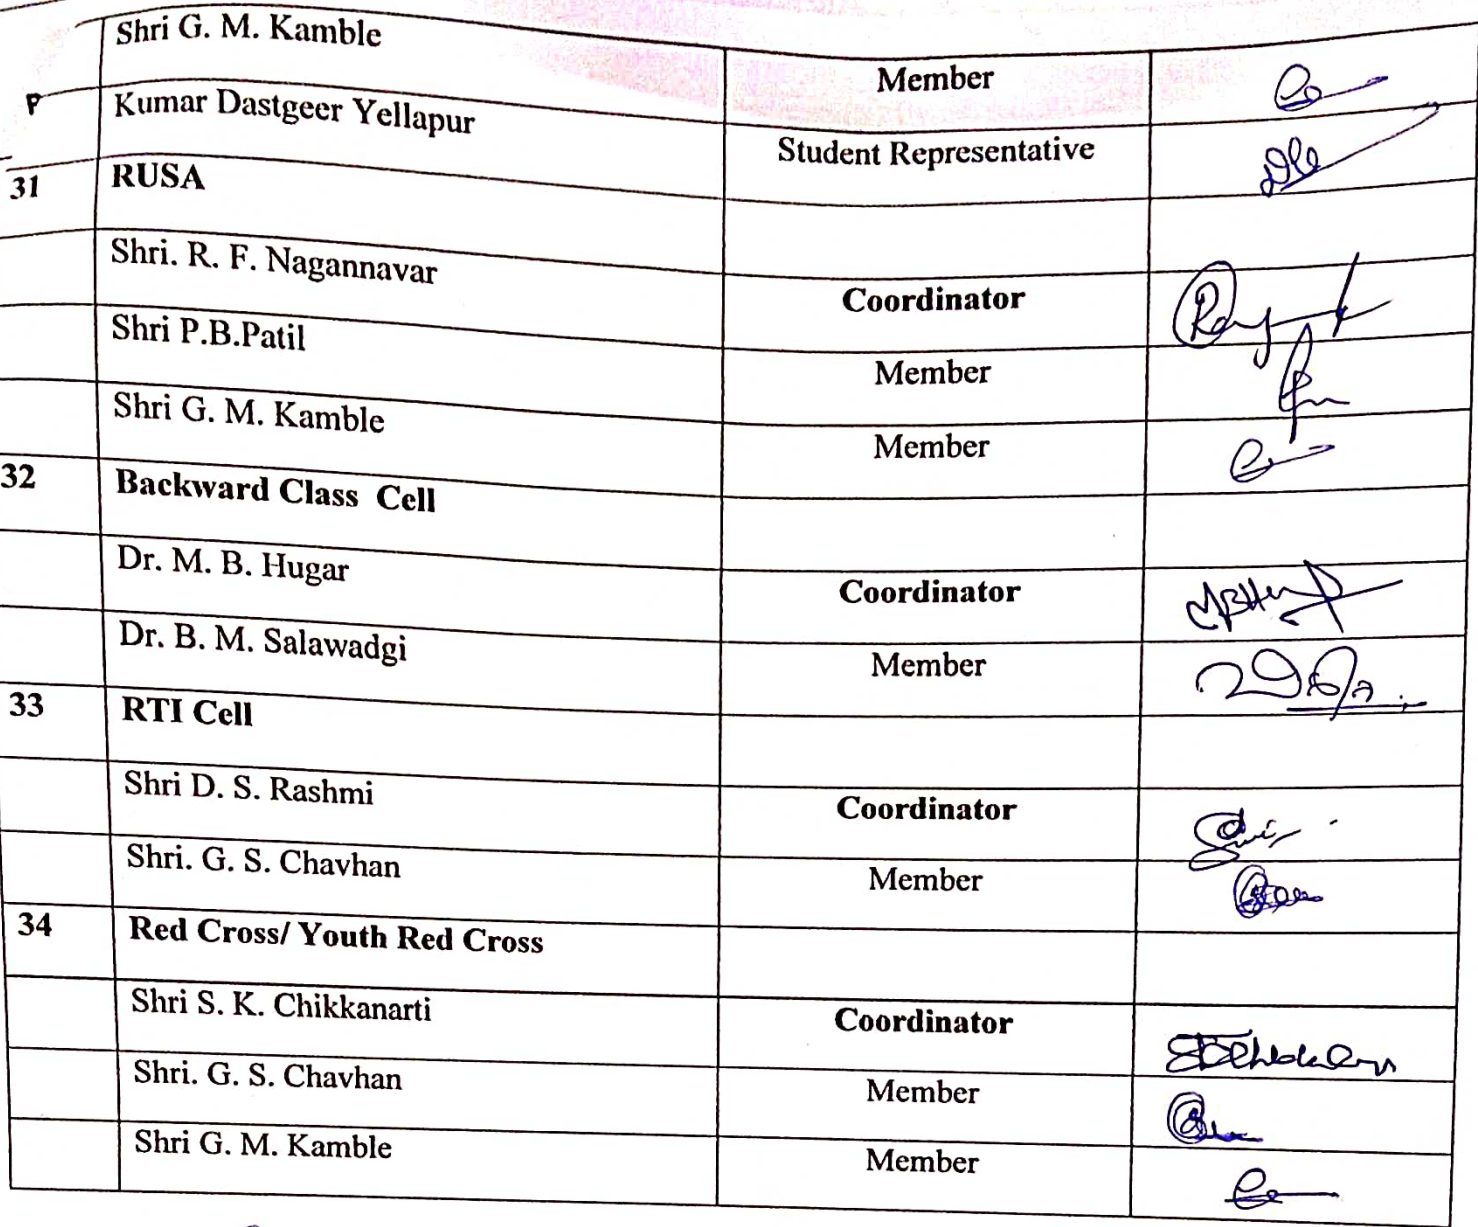 Shri G. M. Kamble Member
Kumar Dastgeer Yellapur Student Representative
31 RUSA
Shri. R. F. Nagannavar Coordinator
Shri P.B.Patil Member
Shri G. M. Kamble Member
32 Backward Class Cell
Dr. M. B. Hugar Coordinator
Dr. B. M. Salawadgi Member
33 RTI Cell
Shri D. S. Rashmi Coordinator
Shri. G. S. Chavhan Member
34 Red Cross/ Youth Red Cross
Shri S. K. Chikkanarti Coordinator
Shri. G. S. Chavhan Member
Shri G. M. Kamble Member